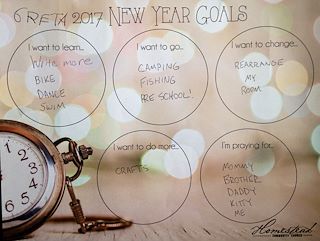 GRETA 2017 NEW YEAR GOALS
I want to learn...
Write more
BIKE
DANCE
SWIM
I want to go...
CAMPING
FISHING
PRE SCHOOL!
I want to change...
REARRANGE
MY
ROOM
I want to do more...
CRAFTS
I'm praying for...
MOMMY
BROTHER
DADDY
KITTY
ME
Homestead
COMMUNITY CHURCH
12
1
2
3
4
5
6